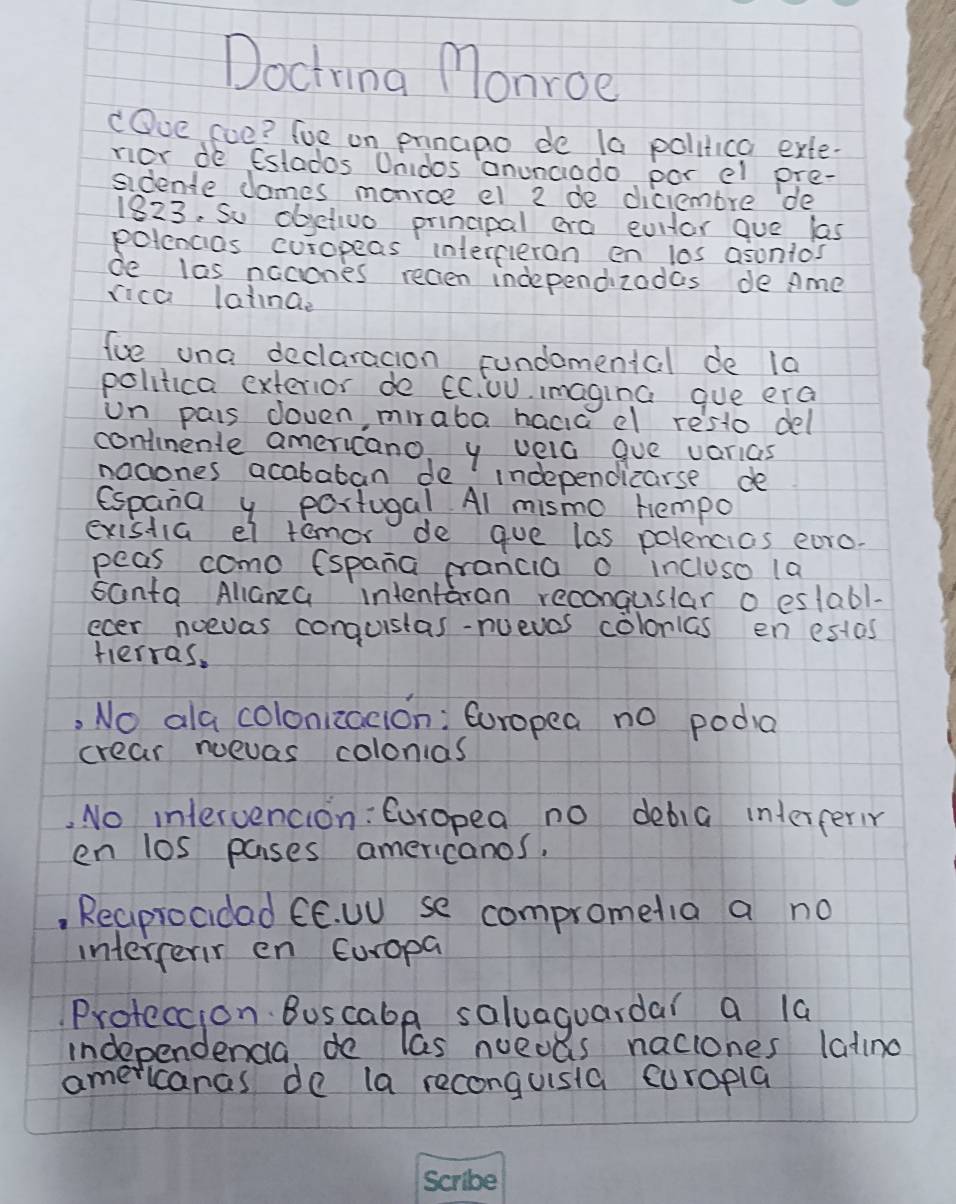 Doctrina Monroe
¿Que fue? fue un principio de la politica exte-
rior de Estados Unidos anunciado por el pre-
sidente James monroe el 2 de diciembre de
1823. Su objetivo principal era evitar que las
potencias europeas interfieran en los asuntos
de las naciones recien independizadas de Ame
rica latina.
fue una declaracion fundamental de la
politica exterior de EE.UU. imagina que era
un pais joven, miraba hacia el resto del
continente americano y veia que varias
naciones acababan de independizarse de
España y portugal. Al mismo tiempo
existia el temor de que las potencias euro-
peas como España francia o incluso la
Santa Alianza intentaran reconquistar o establ-
ecer nuevas conquistas - nuevas colonias en estas
tierras.
• No ala colonización: Europea no podia
crear nuevas colonias
• No intervención: Europea no debia interferir
en los paises americanos.
• Reciprocidad EE.UU se comprometia a no
interferir en Europa
• Proteccion. Buscaba salvaguardar a la
independencia de las nuevas naciones latino
americanas de la reconquista europia
Scribe